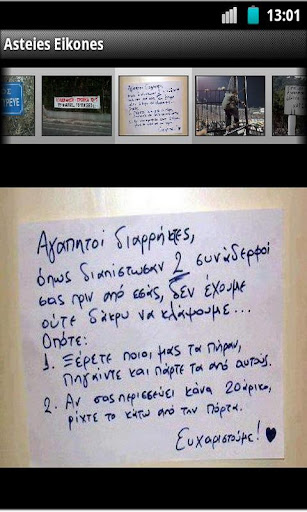 13:01
Asteies Eikones
Αγαπητοί διαρρήκτες,
όπως διαπίστωσαν 2 συνάδερφοί
σας πριν από εσάς, δεν έχουμε
ούτε δάκρυ να κλάψουμε...
Οπότε:
1. Ξέρετε ποιοι μας τα πήραν,
Πηγαίντε και πάρτε τα από αυτούς.
2. Αν σας περισσεύει κάνα 20άρικο,
ρίχτε το κάτω από την Πόρτα.
Ευχαριστούμε!